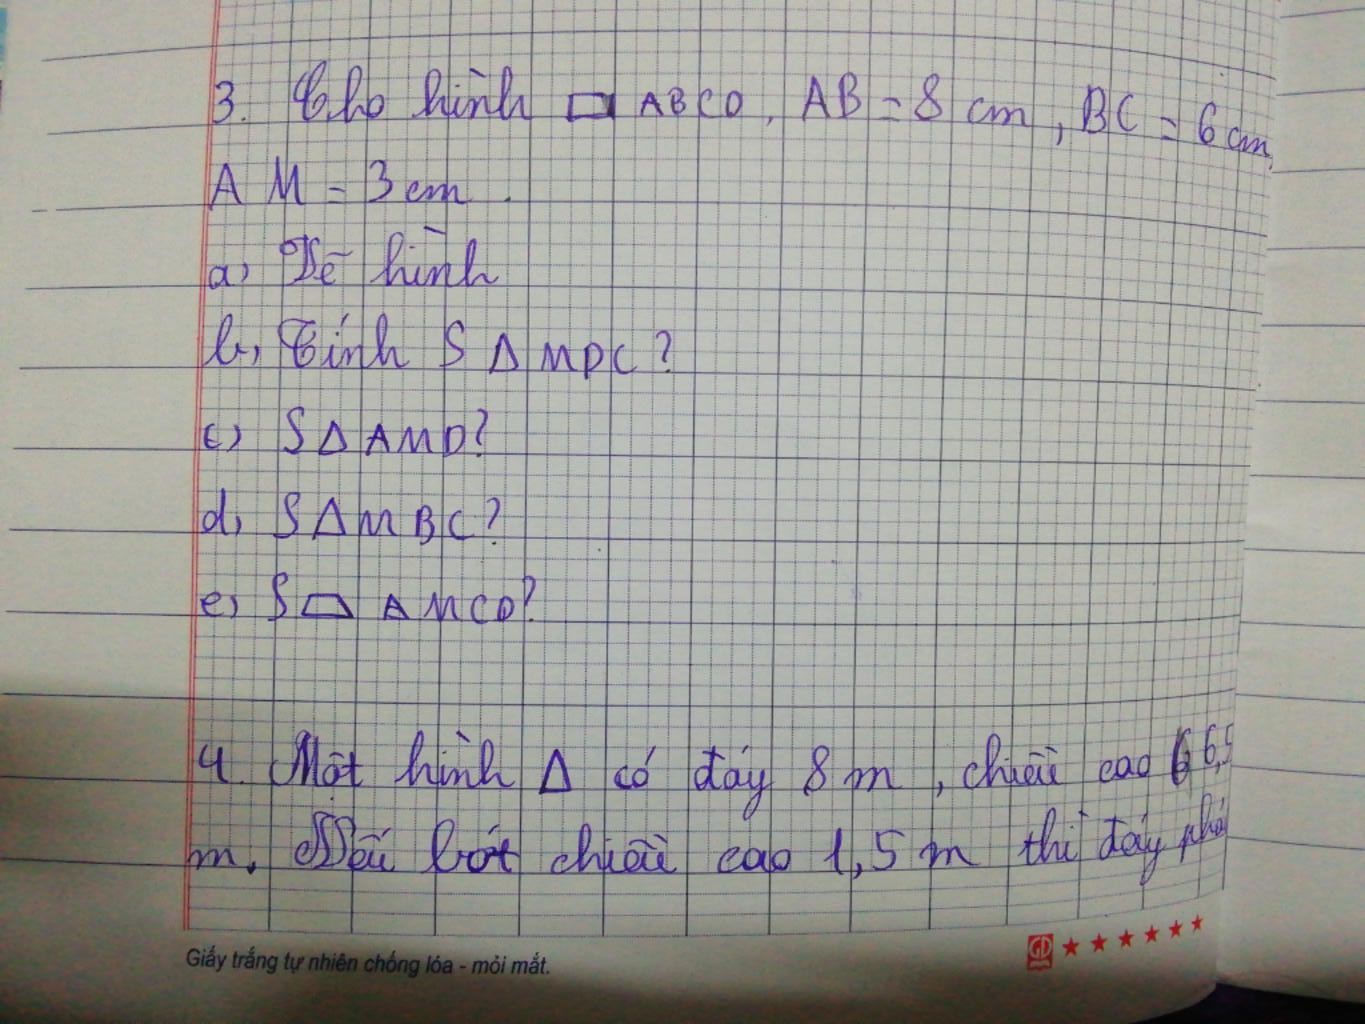 3. Cho hình ▭ ABCD, AB = 8 cm, BC = 6 cm,
AM = 3 cm.
a, Vẽ hình
b, Tính S Δ MDC?
c) S Δ AMD?
d, S Δ MBC?
e, S ▱ AMCD?
4. Một hình Δ có đáy 8 m, chiều cao 6,5
m. Nếu bớt chiều cao 1,5 m thì đáy phải
Giấy trắng tự nhiên chống lóa - mỏi mắt.
GD